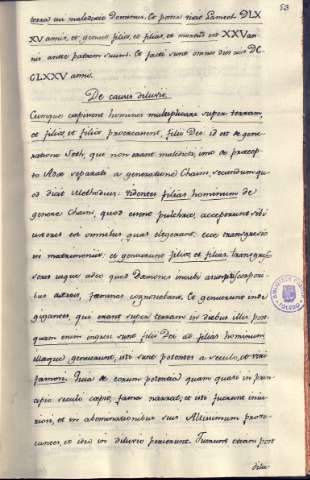 53
terra cui maledixit Dominus. Et postea vixit Lamech DLX
XV annis, et genuit filios, et filias, et mortuus est XXV an-
nis ante patrem suum. Et facti sunt omnes dies sui DC
CLXXV anni.
De causis diluvii.
Cumque cepissent homines multiplicari super terram,
et filios, et filias procreassent, filii Dei id est de gene-
ratione Seth, que non erant maledicti, imo de precep-
to Ade separati a generatione Chaim, secundum quod
dicit Methodius: videntes filias hominum de
genere Chaim, quod essent pulchrae, acceperunt sibi
uxores ex omnibus, quas elegerant,
in matrimoniis, et genuerunt filios, et filias,
usque adeo quod Daemones incubi
feminas cognoscebant. Et genuerunt inde
gigantes, qui erant super terram in diebus illis post
quam enim ingressi sunt filii Dei ad filias hominum
illaeque genuerunt, isti sunt potentes a seculo, et viri
famosi. Quia de eorum potentia quam quasi in prin-
cipio seculi fama narrat; et isti fuerunt
et in abominationibus suis Altissimum provo-
cantes, et ideo in diluvio perierunt. Fuerunt etiam post
dilu-
BIBLIOTECA
TOLEDO